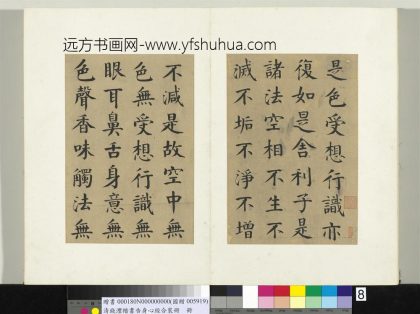 远方书画网-www.yfshuhua.com
是色受想行識亦
復如是舍利子是
諸法空相不生不
滅不垢不淨不增
不減是故空中無
色無受想行識無
眼耳鼻舌身意無
色聲香味觸法無
8
贈書 000180N000000000(國贈 005919)